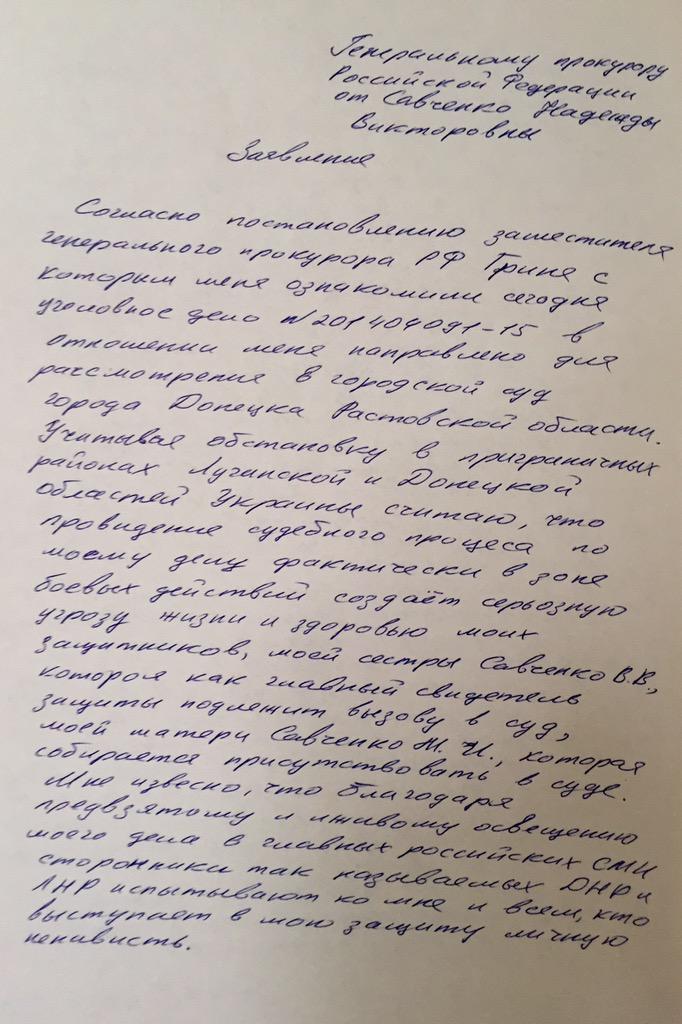 Генеральному прокурору
Российской Федерации
от Савченко Надежды
Викторовны
Заявление
Согласно постановлению заместителя
генерального прокурора РФ Гриня с
которым меня ознакомили сегодня
уголовное дело №201404091-15 в
отношении меня направлено для
рассмотрения в городской суд
города Донецка Растовской области.
Учитывая обстановку в приграничных
районах Луганской и Донецкой
областей Украины считаю, что
провидение судебного процеса по
моему делу фактически в зоне
боевых действий создаёт серьозную
угрозу жизни и здоровью моих
защитников, моей сестры Савченко В.В.,
которая как главный свидетель
защиты подлежит вызову в суд,
моей матери Савченко М. И., которая
собирается присутствовать в суде.
Мне извесно, что благодаря
предвзятому и лживому освещению
моего дела в главных российских СМИ
сторонники так называемых ДНР и
ЛНР испытывают ко мне и всем, кто
выступает в мою защиту личную
ненависть.